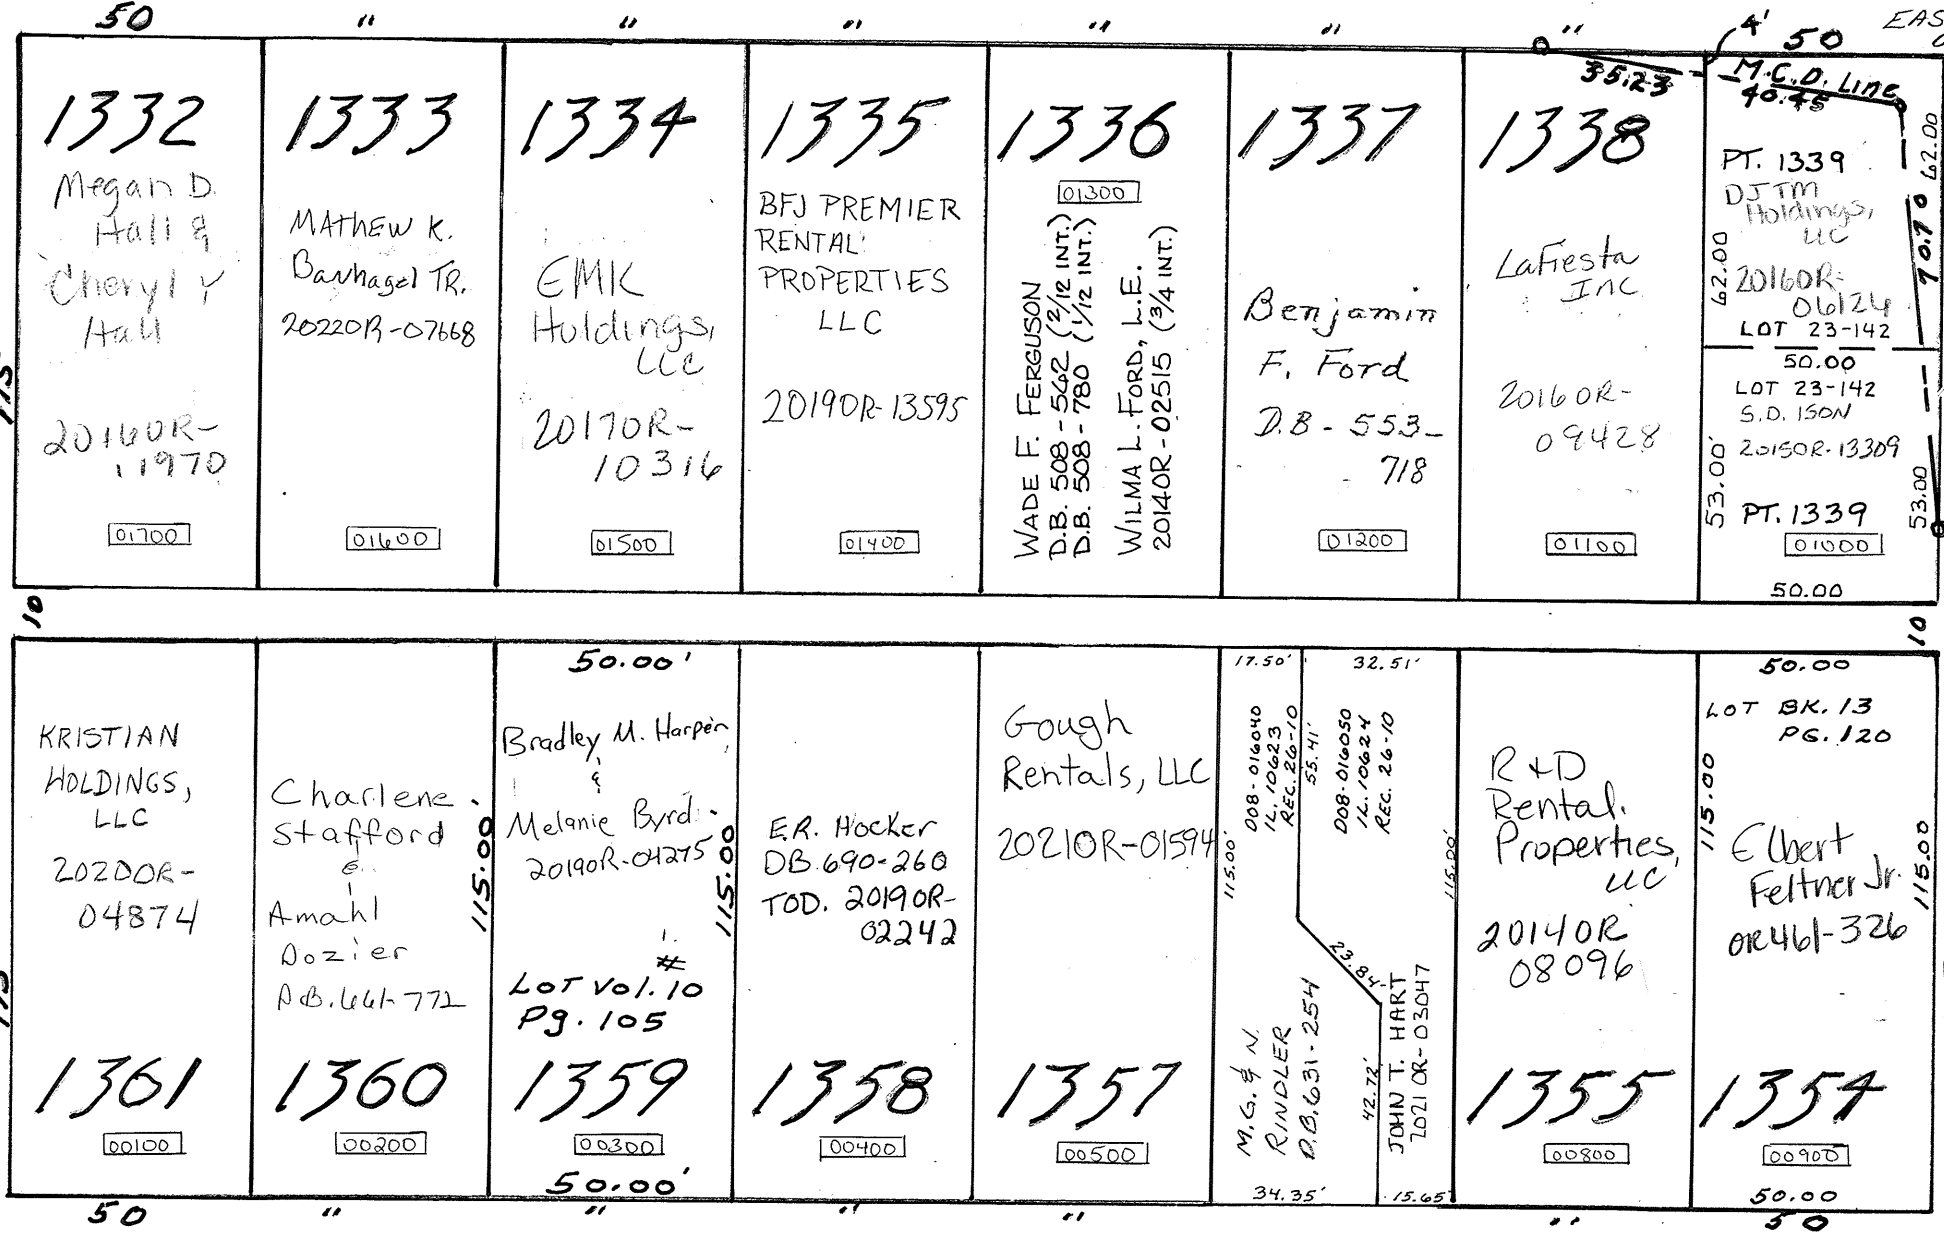 50 " " " " " " 4' 50 EAS
35.23 M.C.D. Line
40.45
1332
Megan D.
Hall &
Cheryl Y
Hall
20160R-
11970
01700
1333
MATHEW K.
Banhagel TR.
20220R-07668
01600
1334
EMK
Holdings,
LLC
20170R-
10316
01500
1335
BFJ PREMIER
RENTAL
PROPERTIES
LLC
20190R-13595
01400
1336
01300
WADE F. FERGUSON
D.B. 508-562 (2/12 INT.)
D.B. 508-780 (1/12 INT.)
WILMA L. FORD, L.E.
20140R-02515 (3/4 INT.)
1337
Benjamin
F. Ford
D.B - 553-
718
01200
1338
LaFiesta
Inc
20160R-
09428
01100
PT. 1339
DJTM
Holdings,
LLC
20160R-
06124
LOT 23-142
62.00
62.00
70.70
50.00
LOT 23-142
S.D. ISON
20150R-13309
53.00'
53.00
PT. 1339
01000
50.00
115
10
10
KRISTIAN
HOLDINGS,
LLC
20200R-
04874
1361
00100
Charlene
Stafford
&
Amahl
Dozier
D.B. 661-772
1360
00200
50.00'
Bradley M. Harper
&
Melanie Byrd
20190R-04275
115.00'
115.00
LOT Vol. 10
Pg. 105
1359
00300
50.00'
E.R. Hocker
DB 690-260
TOD. 20190R-
02242
1358
00400
Gough
Rentals, LLC
20210R-01594
1357
00500
17.50'
32.51'
115.00'
D08-016040
IL. 10623
REC. 26-10
55.41'
D08-016050
IL. 10624
REC. 26-10
115.00'
23.84'
42.72'
M.G. & N.
RINDLER
D.B. 631-254
JOHN T. HART
2021 OR-03047
34.35'
15.65'
R & D
Rental
Properties,
LLC
20140R
08096
1355
00800
50.00
LOT BK. 13
PG. 120
115.00
Elbert
Feltner Jr.
OR461-326
115.00
1354
00900
50.00
115
50 " " " " " 50